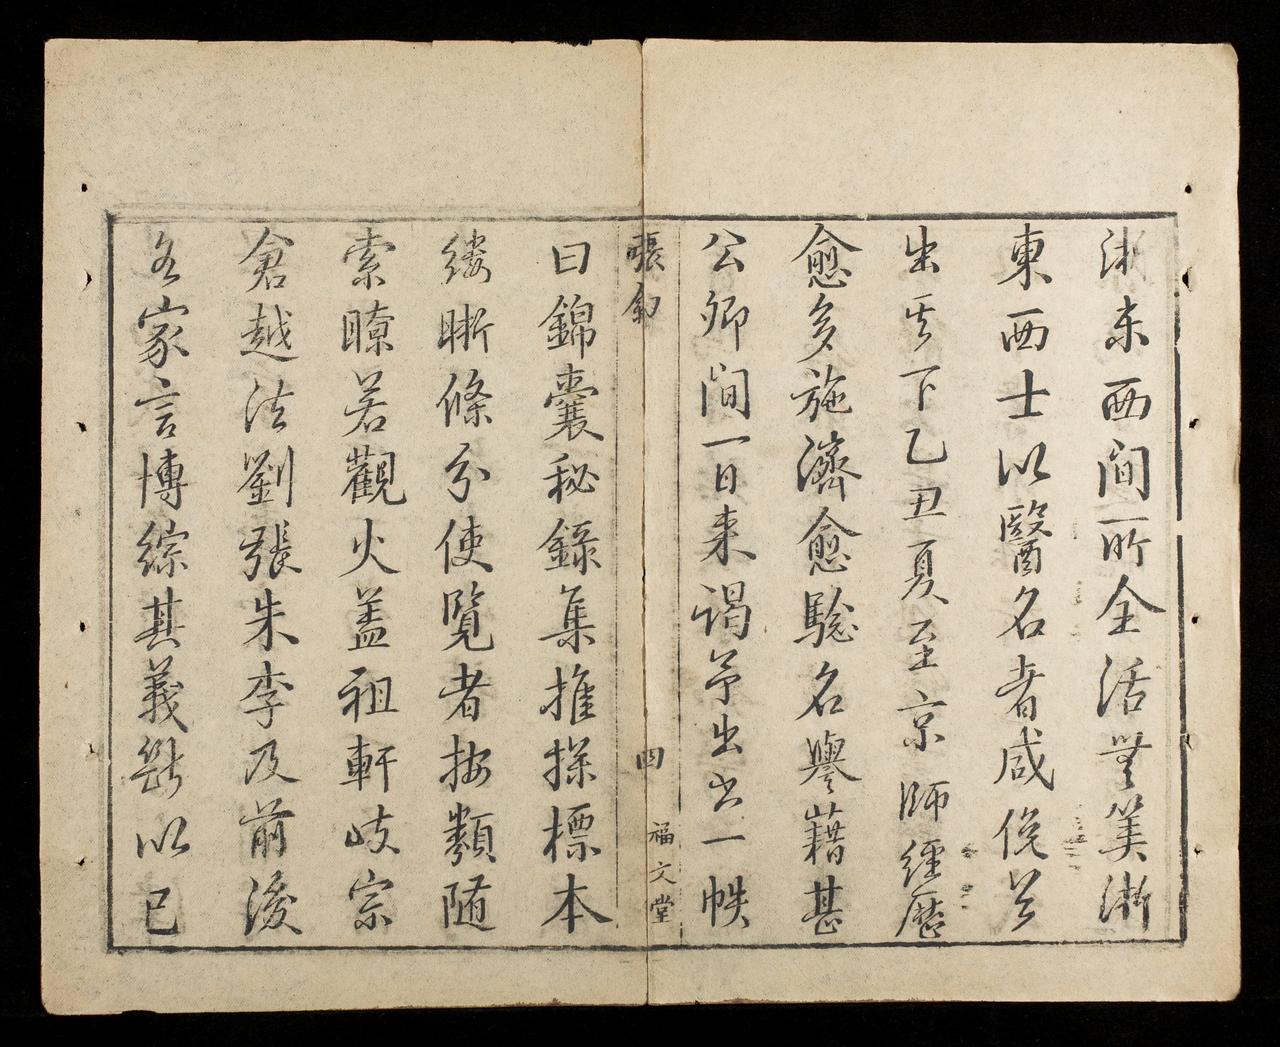 浙东西间所全活無筭浙
東西士以醫名者咸俛首
出其下乙丑夏至京師經歷
愈多施濟愈驗名譽藉甚
公卿間一日来謁予出書一帙
張叙
四
福文堂
曰錦囊秘錄集推採標本
縷晰條分使覽者按類随
索瞭若觀火盖祖軒岐宗
倉越法劉張朱李及前後
各家言博綜其義斷以已